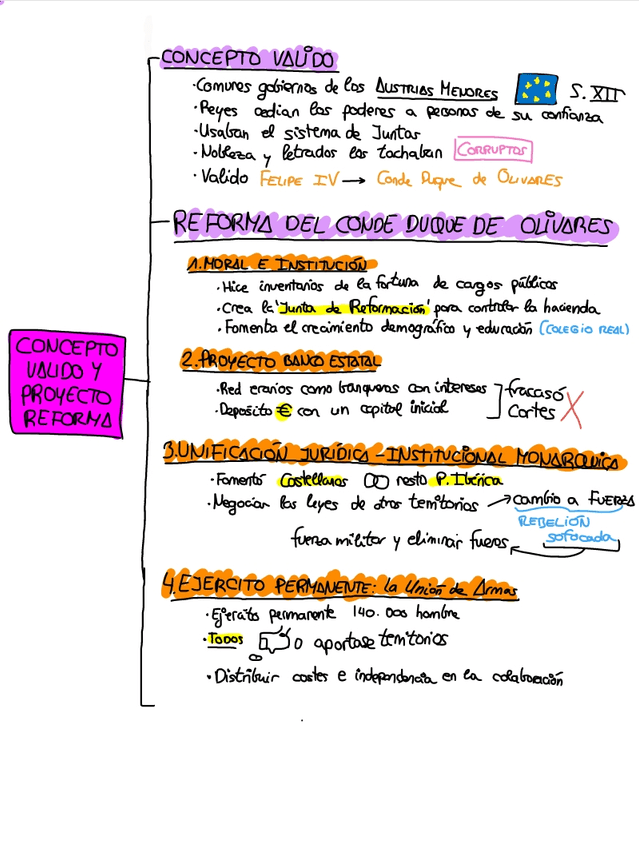 CONCEPTO VALIDO
· Comunes gobiernos de los AUSTRIAS MENORES S. XII
· Reyes cedian los poderes a personas de su confianza
· Usaban el sistema de Juntas
· Nobleza y letrados los tachaban CORRUPTOS
· Valido FELIPE IV → Conde Duque de OLIVARES
REFORMA DEL CONDE DUQUE DE OLIVARES
1. MORAL E INSTITUCIÓN
· Hice inventarios de la fortuna de cargos públicos
· Crea la 'Junta de Reformación' para controlar la hacienda
· Fomenta el crecimiento demográfico y educación (COLEGIO REAL)
CONCEPTO
VALIDO Y
PROYECTO
REFORMA
2. PROYECTO BANCO ESTATAL
· Red erarios como banqueros con intereses fracasó
· Deposito € con un capital inicial Cortes X
3. UNIFICACIÓN JURÍDICA - INSTITUCIONAL MONARQUICA
· Fomentó Castellanos resto P. Ibérica
· Negocian las leyes de otros territorios → cambio a FUERZA
REBELIÓN
fuerza militar y eliminar fueros sofocada
4. EJERCITO PERMANENTE: la Unión de Armas
· Ejercito permanente 140.000 hombre
· Todos o aportase territorios
· Distribuir costes e independencia en la colaboración